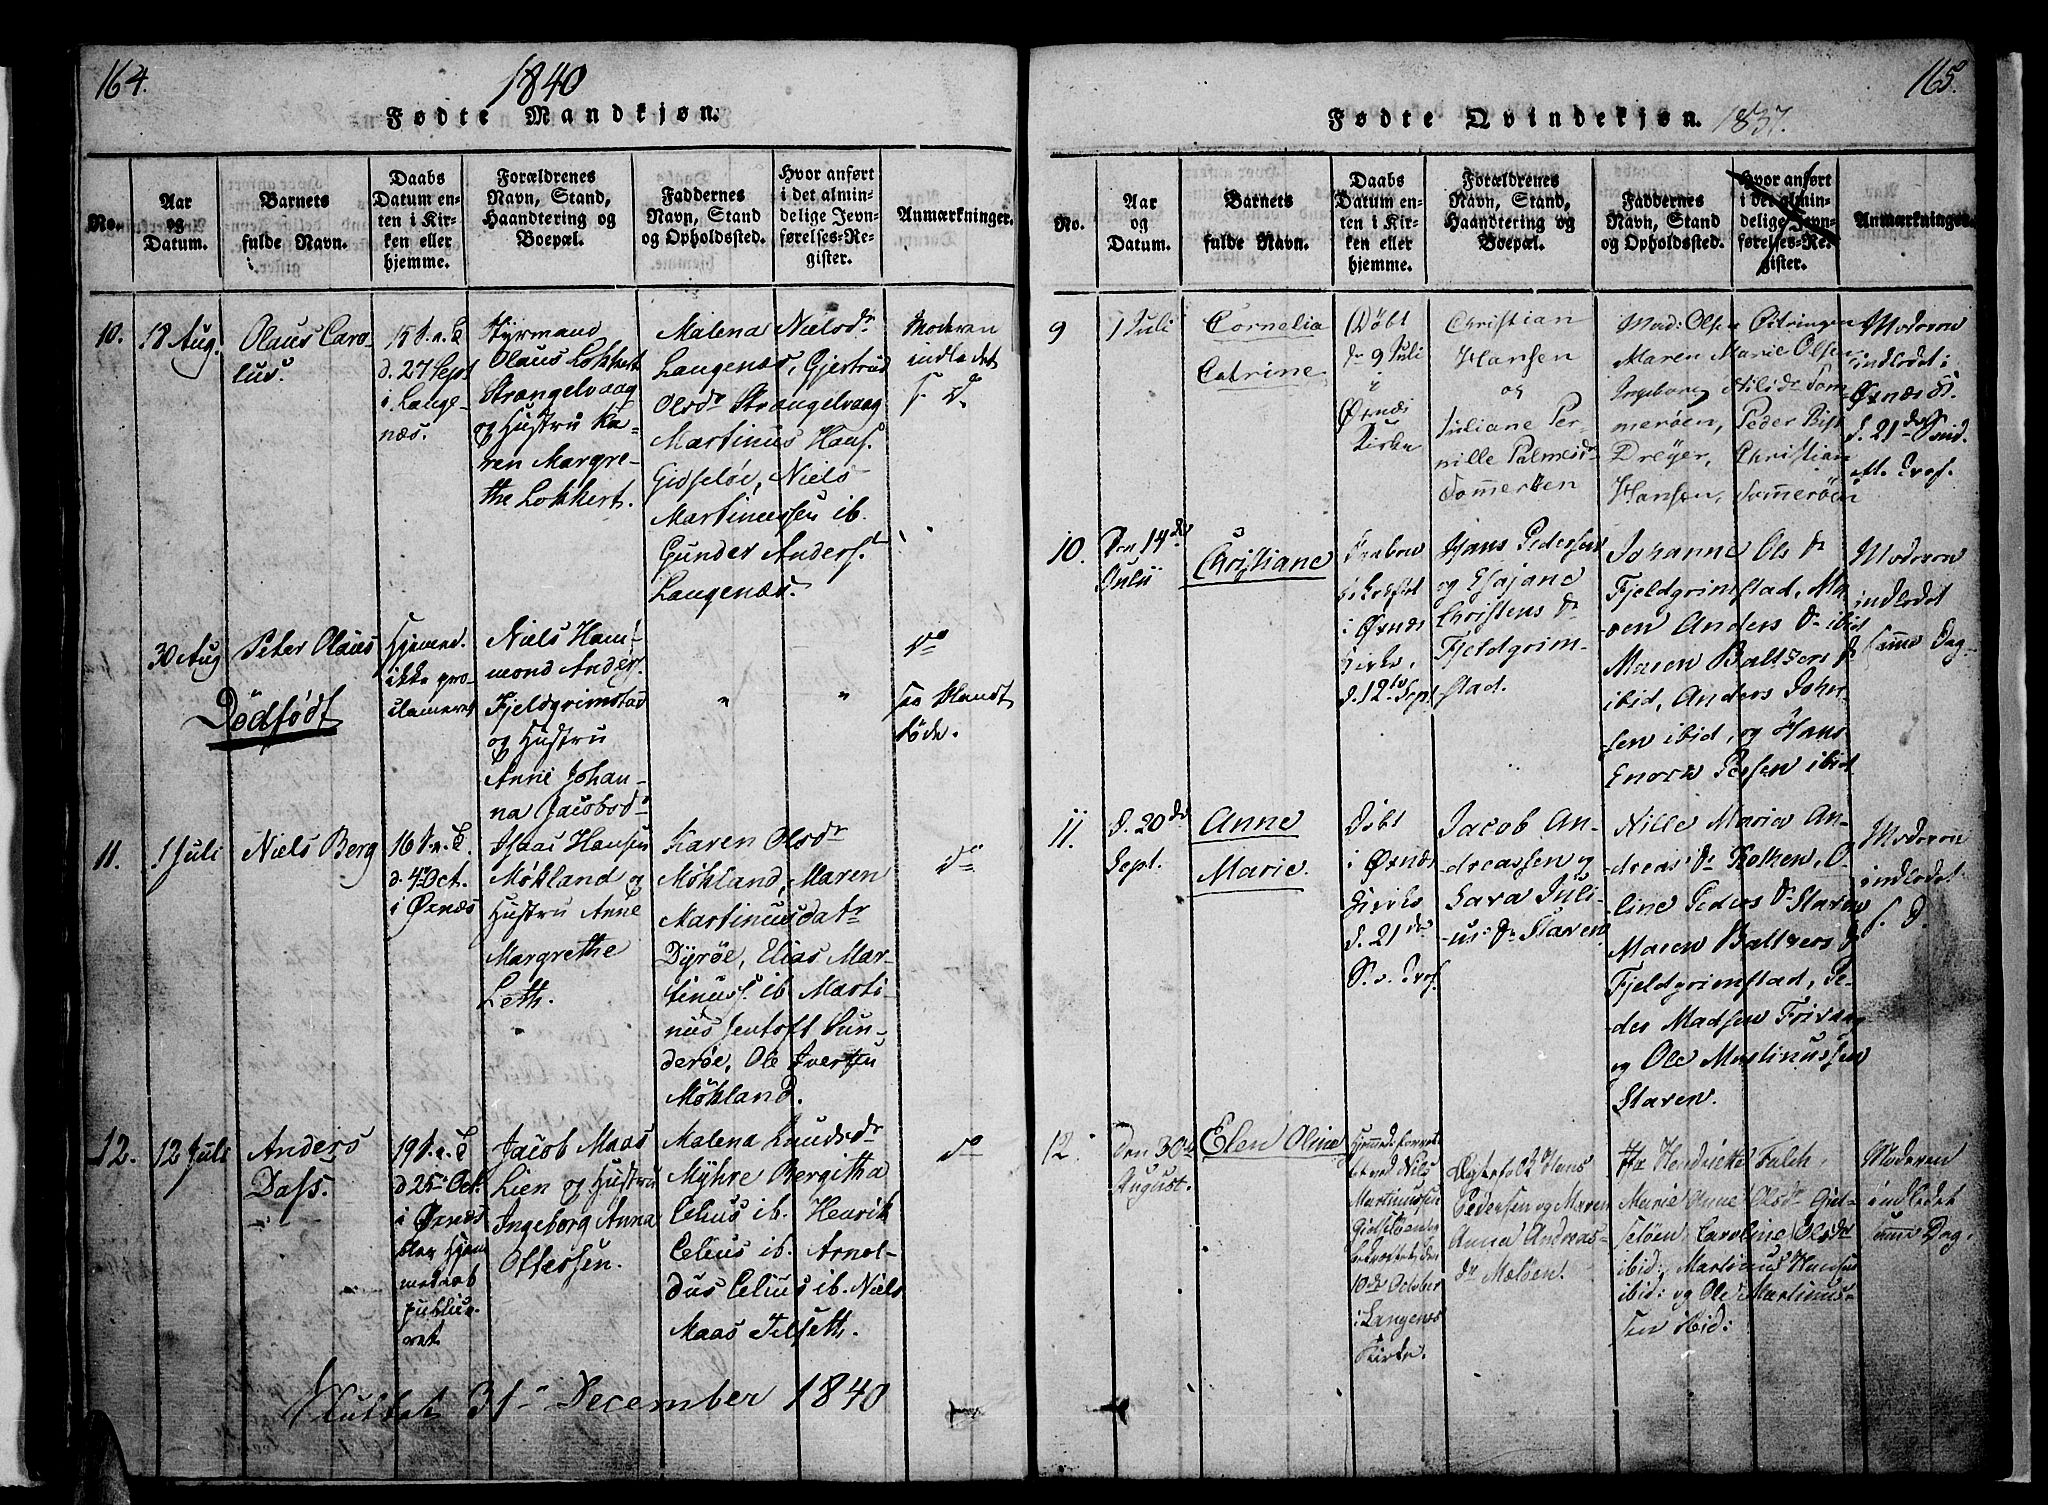 164.
1840
Fødte Mandkjøn.
No.
Aar
og
Datum.
Barnets
fulde Navn.
Daabs
Datum en-
ten i Kir-
ken eller
hjemme.
Forældrenes
Navn, Stand,
Haandtering og
Boepæl.
Faddernes
Navn, Stand
og Opholdssted.
Hvor anført
i det almin-
delige Jevn-
førelses-Re-
gister.
Anmærkninger.
10.
18 Aug.
Olaus Caro-
lus.
15 S. e. T
d. 27 Sept
i Lange-
næs.
Styrmand
Olaus Lokkert
Strangelvaag
og Hustru Ka-
ren Margre-
the Lokkert.
Malena Nielsdr
Langenæs, Gjertrud
Olsdr Strangelvaag
Martinus Hans.
Gidsløe, Niels
Martinussen ib.
Gunder Anders.
Langenæs.
Moderen
indledet
s. D.
30 Aug
Peter Olaus
Dødfødt
Hjemmed.
ikke pro-
clameret
Niels Ham-
mond Anders.
Fjeldgrimstad
og Hustru
Anne Johan-
na Jacobsdr
" "
do
see blandt
døde.
11.
1 Juli
Niels Berg
16 S. e. T.
d. 4 Oct.
i Øxnæs
Isaac Hansen
Møkland og
Hustru Anne
Margrethe
Leth.
Karen Olsdr
Møkland, Maren
Martinusdatr
Dyrøe, Elias Mar-
tinuss. ib. Marti-
nus Jentoft Sun-
derøe, Ole Iversen
Møkland.
do
12.
12 Juli
Anders
Dass.
19 S. e. T
d 25 Oct.
i Øxnæs
blev Hjem-
medaab
publice-
ret
Jacob Maas
Lien og Hustru
Ingeborg Anna
Ottessen.
Malena Knudsdr
Myhre Bergitha
Celius ib. Henrik
Celius ib. Arnol-
dus Celius ib. Niels
Maas Tilseth.
do
Sluttet 31 December 1840
165.
Fødte Qvindekjøn. 1837.
No.
Aar
og
Datum.
Barnets
fulde Navn.
Daabs
Datum en-
ten i Kir-
ken eller
hjemme.
Forældrenes
Navn, Stand,
Haandtering og
Boepæl.
Faddernes
Navn, Stand
og Opholdssted.
Hvor anført
i det almin-
delige Jevn-
førelses-Re-
gister.
Anmærkninger.
9
1 Juli
Cornelia
Catrine
Døbt
d 9 Juli
i
Øxnæs
Kirke
Christian
Hansen
og
Juliane Per-
nille Palmesdr
Sommerøen
Mad: Olsen
Maren Marie Olsen
Ingeborg Nilsdr Som-
merøen, Peder Bist
Dreyer, Christian
Hansen, Sommerøen
Moderen
indledet i
Øxnæs K.
d. 21de Sønd.
eft. Tref.
10.
Den 14de
Julii
Christiane
Daaben
bekræftet
i Øxnæs
Kirke,
d. 12te Sept
Hans Pedersen
og Esajane
Christens dr
Fjeldgrim-
stad.
Johanne Ols dr
Fjeldgrimstad, Ma-
ren Anders dr ibid
Maren Baltzers dr
ibid, Anders John-
sen ibid, og Hans
Enoch Persen ibid
Moderen
indledet
samme Dag
11.
d. 20de
Sept.
Anne
Marie.
Døbt
i Øxnæs
Kirke
d. 21de
S. e. Tref.
Jacob An-
dreassen og
Sara Juli-
us' dr Staren
Nille Maria An-
dreas' dr Kolhen, O-
line Peders dr Staren
Maren Baltzers dr
Fjeldgrimstad, Pe-
der Madsen Frivaag
og Ole Martinussen
Staren.
Moderen
indledet
s. D.
12.
Den 30te
August.
Elen Oline
Hjemmedr forret-
tet ved Nils
Martinussen
Gisløen
bekræftet den
10de October
i Langenæs
Kirke.
Ægtefolk Hans
Pedersen og Maren
Anna Andreas-
dr Meløen.
Henriette Falch,
Marie Anne Olsdr Gis-
løen, Caroline Olsdr
ibid:, Martinus Hansen
ibid: og Ole Martinus-
sen ibid:
Moderen
indledet
samme Dag.